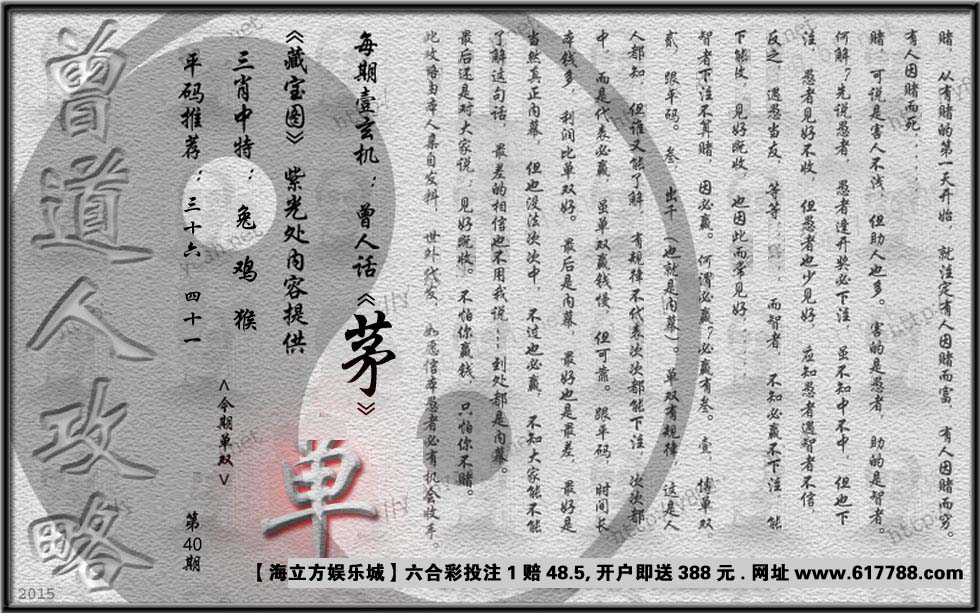 赌，从有赌的第一天开始，就注定有人因赌而富，有人因赌而穷。
有人因赌而死......
赌，可说是害人不浅，但助人也多。害的是愚者，助的是智者。
何解？先说愚者，愚者逢开奖必下注，虽不知中不中，但也下
注，愚者见好不收，但愚者也少见好，应知愚者遇智者不信，
反之，遇愚当友，等等......而智者，不知必赢不下注，能
下能收，见好既收，也因此而常见好......
智者下注不算赌，因必赢。何谓必赢？必赢有叁。壹，博单双，
贰，跟平码。叁，出千（也就是内幕）。单双有规律，这是人
人都知，但谁又能了解，有规律不代表次次都能下注，次次都
中，而是代表必赢，虽单双赢钱慢，但可靠。跟平码，时间长
本钱多，利润比单双好。最后是内幕，最好也是最差，最好是
当然真正内幕，但也没法次次中，不过也必赢，不知大家能不能
了解这句话，最差的相信也不用我说...到处都是内幕。
最后还是对大家说：见好既收。不怕你赢钱，只怕你不赌。
此攻略由本人亲自发料，世外代发，如愿信本愚者必有机会收手。
每期壹玄机：曾人话《茅》
《藏宝图》紫光处内容提供
三肖中特：兔 鸡 猴
平码推荐：三十六 四十一
<今期单双>
单
第40期
曾道人攻略
【海立方娱乐城】六合彩投注1赔48.5,开户即送388元.网址www.617788.com
2015